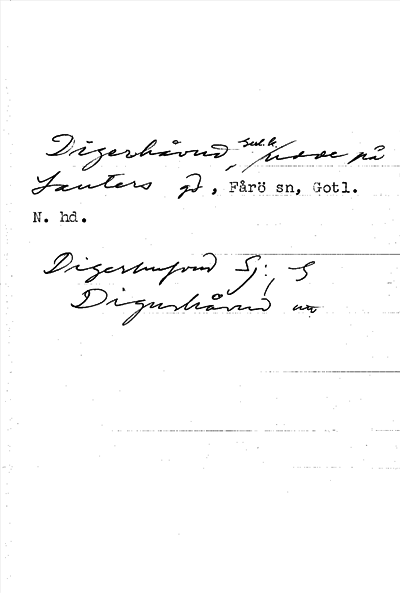 Digerhåvud, udde på
Lauters gd, Fårö sn, Gotl.
N. hd.
Digerhufvud Sj: G
Digerhåvud